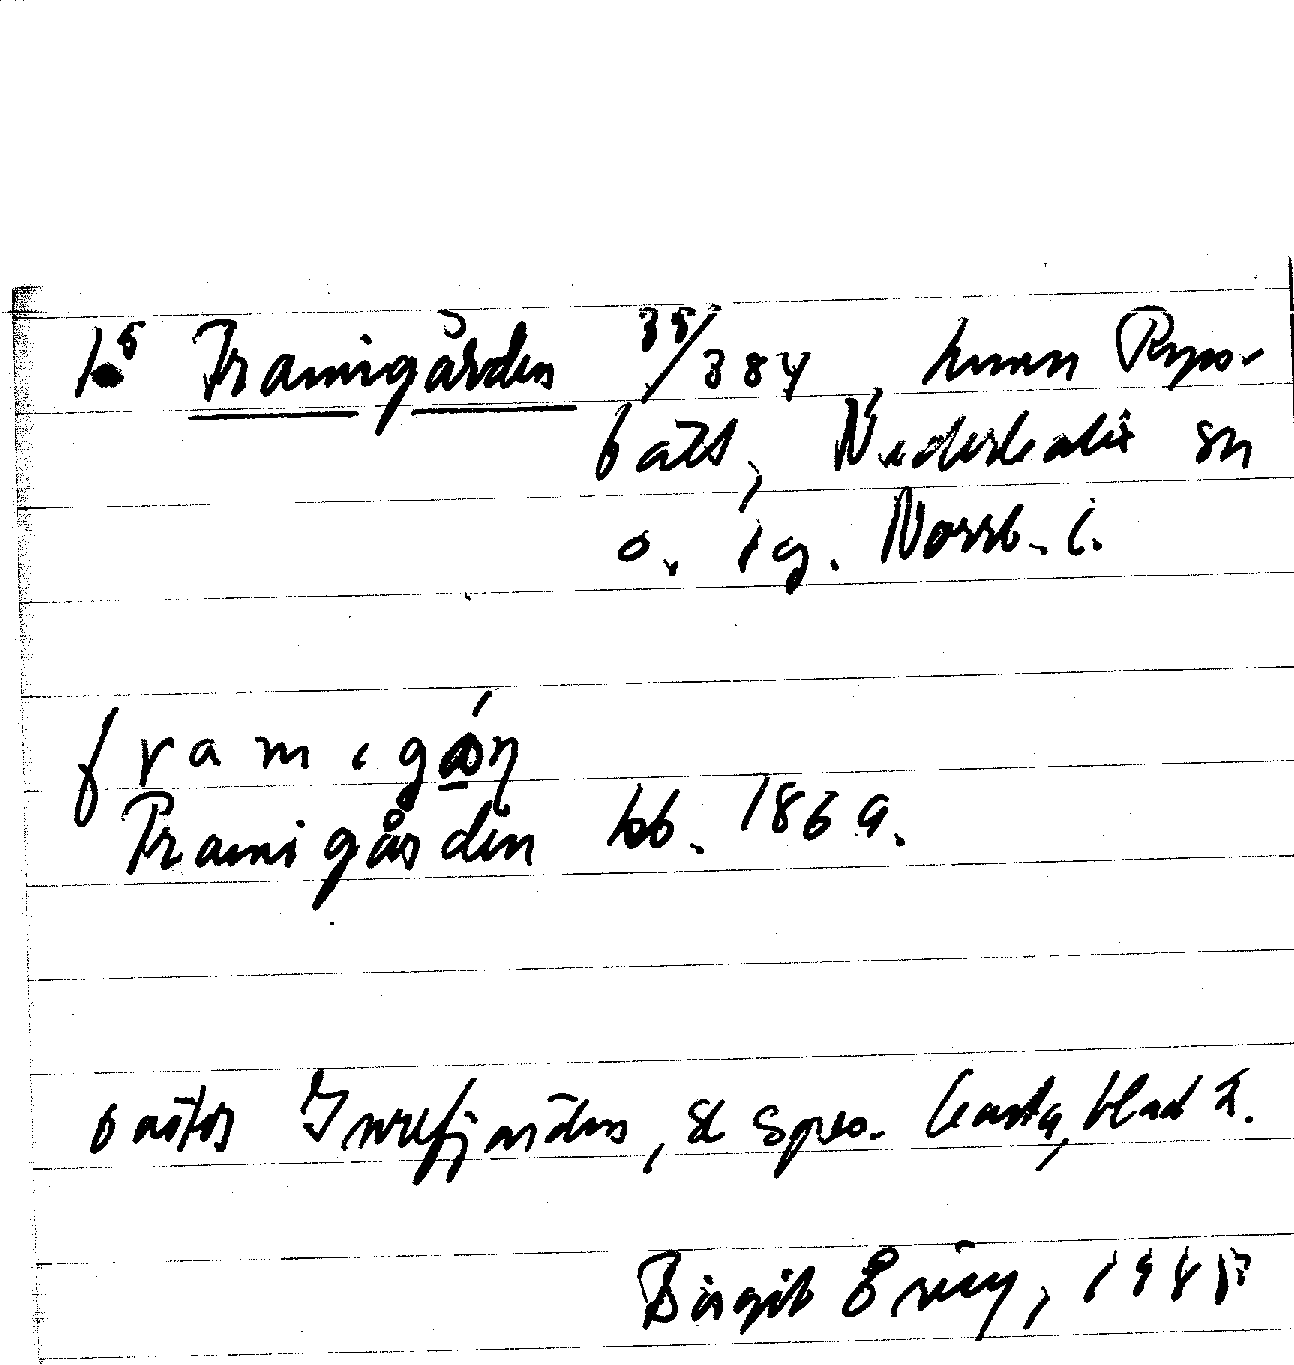 Framigården 35/384, hmn Ryss-
bält, Nederkalix sn
o. tg. Norrb. l.
framigǻɳ
Framigården kb. 1869.
öster Innefjärden, se spec. karta, blad 2.
Birgit Eriz, 1945